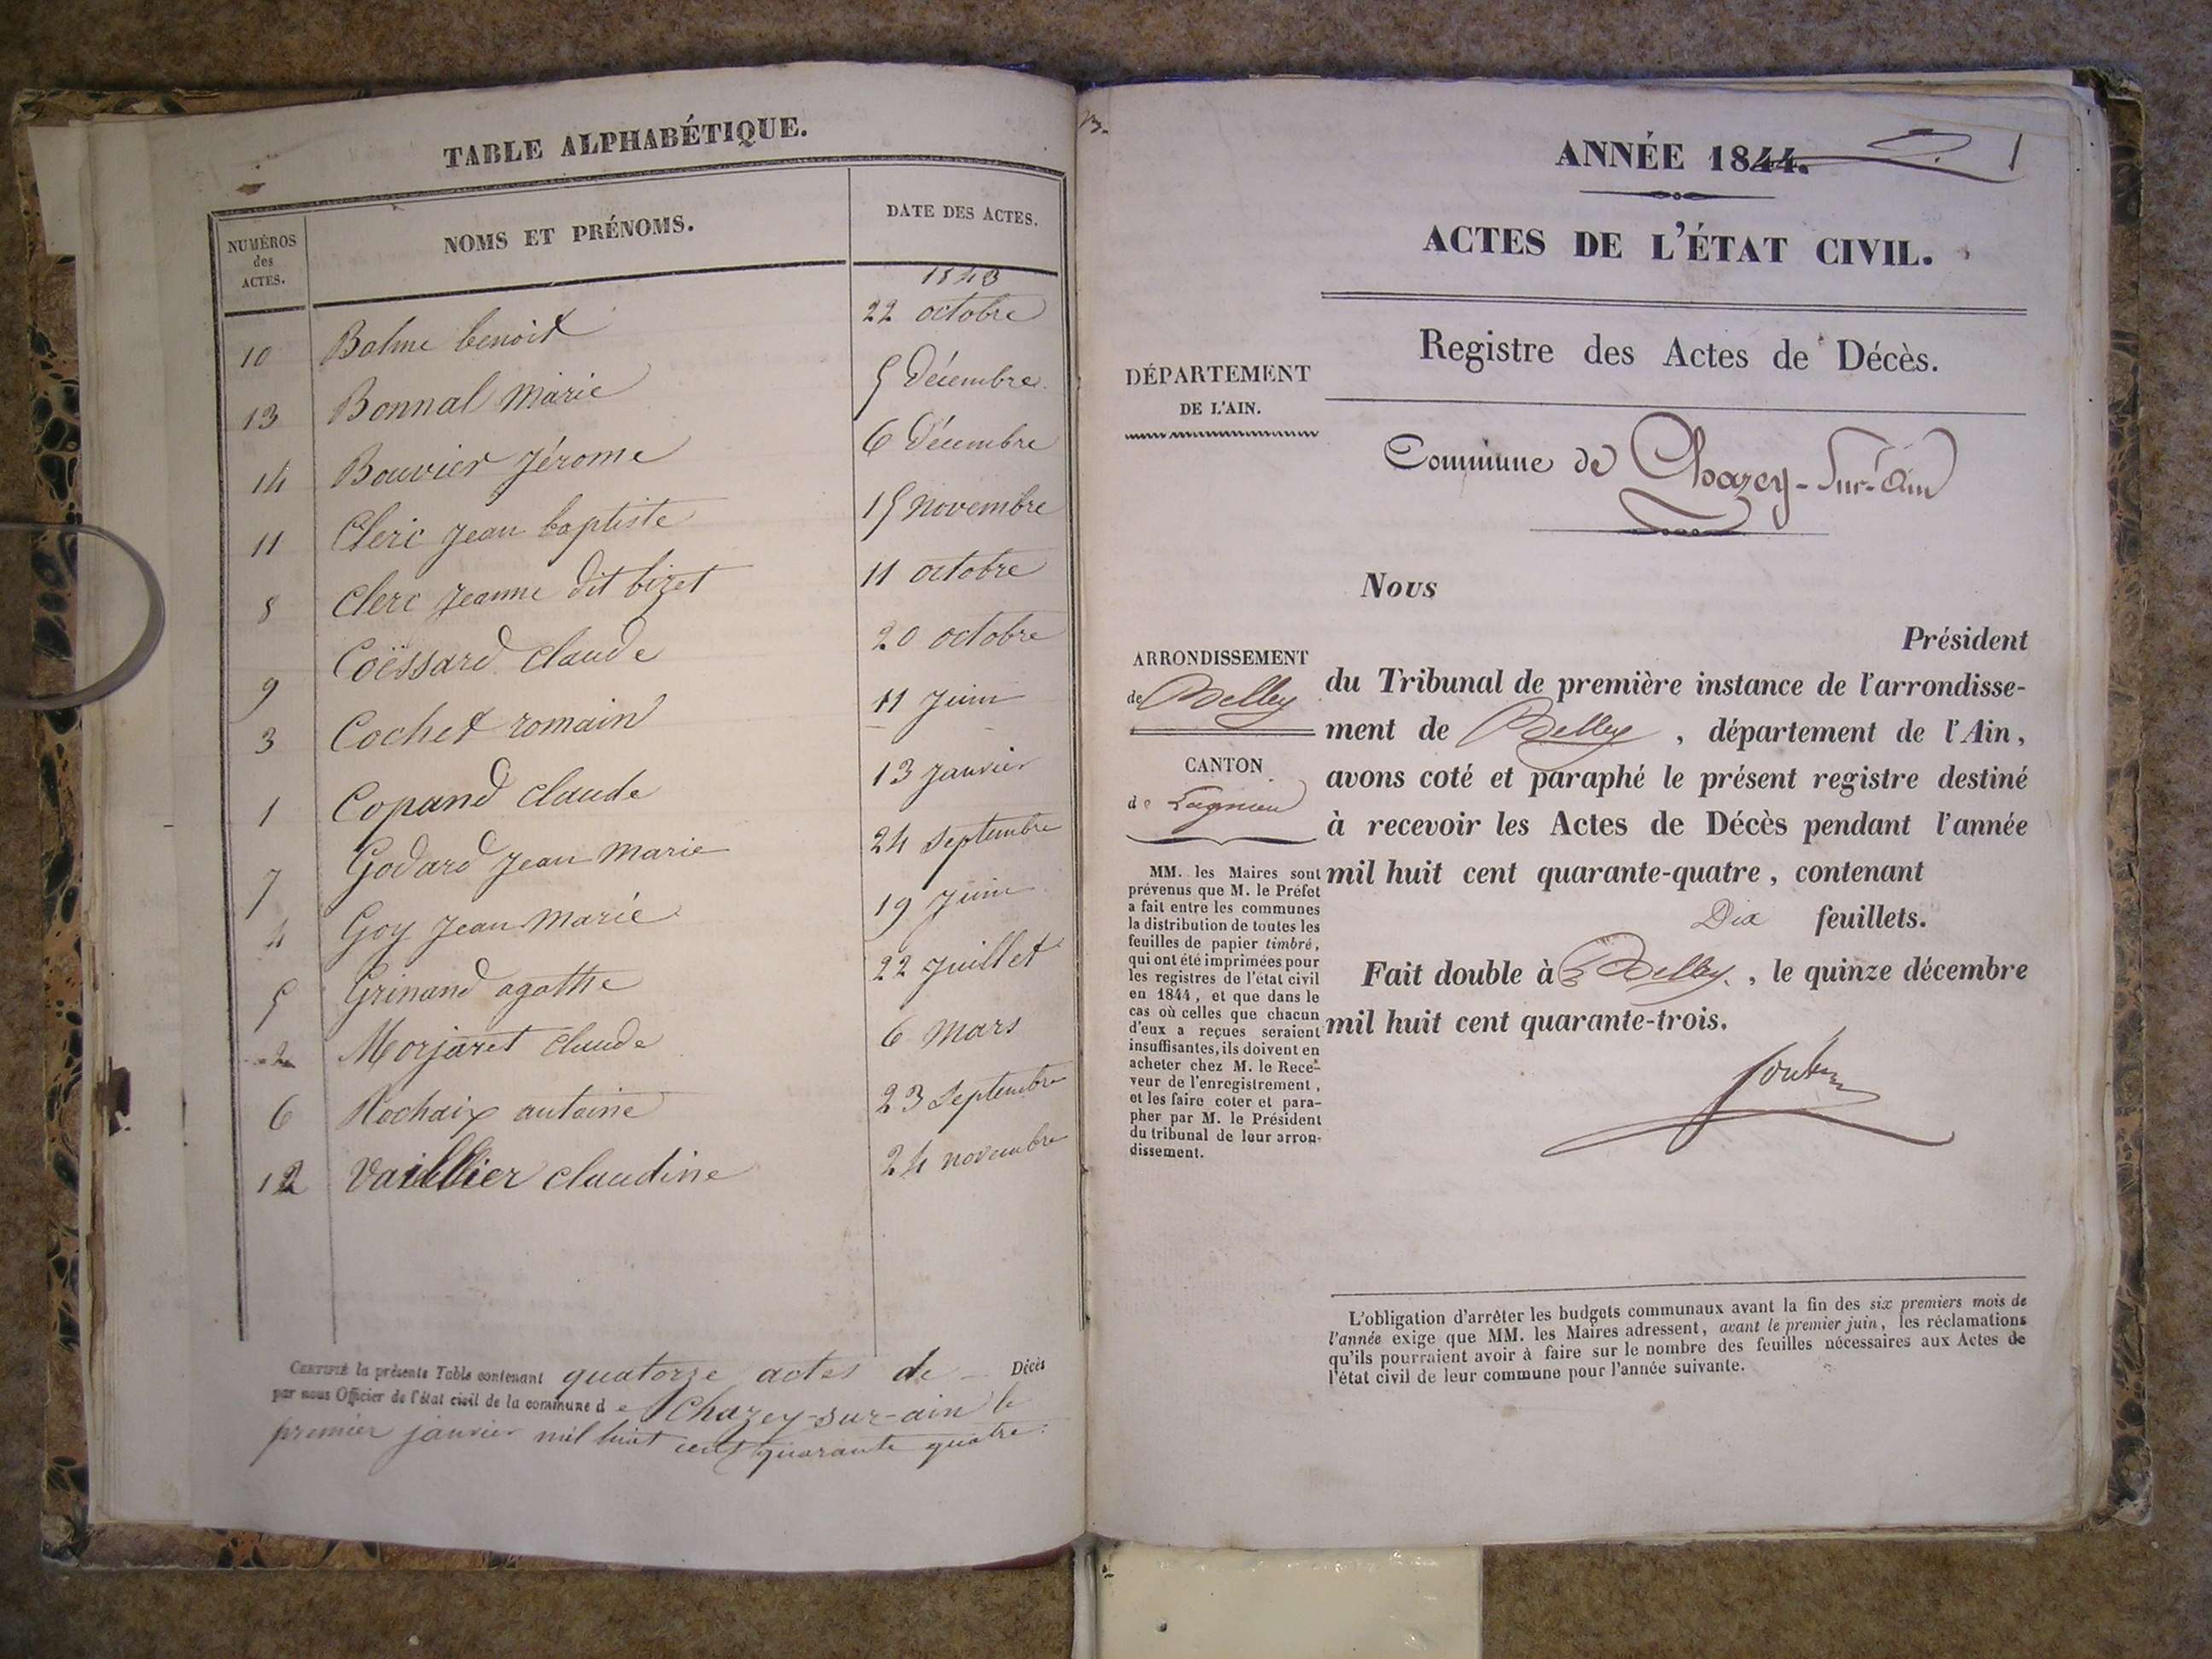 TABLE ALPHABÉTIQUE.
NUMÉROS des ACTES. NOMS ET PRÉNOMS. DATE DES ACTES.
1843
10 Balme benoit 22 octobre
13 Bonnal marie 5 Décembre
14 Bouvier jérome 6 Décembre
11 Cleric jean baptiste 15 novembre
8 Clerc jeanne dit bizet 11 octobre
9 Coëssard claude 20 octobre
3 Cochet romain 11 juin
1 Copand claude 13 janvier
7 Godard jean marie 24 septembre
4 Goy jean marie 19 juin
5 Grinand agathe 22 juillet
2 Morjaret claude 6 mars
6 Rochaix antoine 23 septembre
12 Vaillier claudine 24 novembre
CERTIFIÉ la présente Table contenant quatorze actes de Décès
par nous Officier de l'état civil de la commune de Chazey-sur-ain le
premier janvier mil huit cent quarante quatre.
ANNÉE 1844. 1
ACTES DE L'ÉTAT CIVIL.
Registre des Actes de Décès.
DÉPARTEMENT
DE L'AIN.
Commune de Chazey-sur-Ain
ARRONDISSEMENT
de Belley
CANTON
de Lagnieu
MM. les Maires sont
prévenus que M. le Préfet
a fait entre les communes
la distribution de toutes les
feuilles de papier timbré,
qui ont été imprimées pour
les registres de l'état civil
en 1844, et que dans le
cas où celles que chacun
d'eux a reçues seraient
insuffisantes, ils doivent en
acheter chez M. le Rece-
veur de l'enregistrement,
et les faire coter et para-
pher par M. le Président
du tribunal de leur arron-
dissement.
Nous
Président
du Tribunal de première instance de l'arrondisse-
ment de Belley, département de l'Ain,
avons coté et paraphé le présent registre destiné
à recevoir les Actes de Décès pendant l'année
mil huit cent quarante-quatre, contenant
Dix feuillets.
Fait double à Belley, le quinze décembre
mil huit cent quarante-trois.
L'obligation d'arrêter les budgets communaux avant la fin des six premiers mois de
l'année exige que MM. les Maires adressent, avant le premier juin, les réclamations
qu'ils pourraient avoir à faire sur le nombre des feuilles nécessaires aux Actes de
l'état civil de leur commune pour l'année suivante.